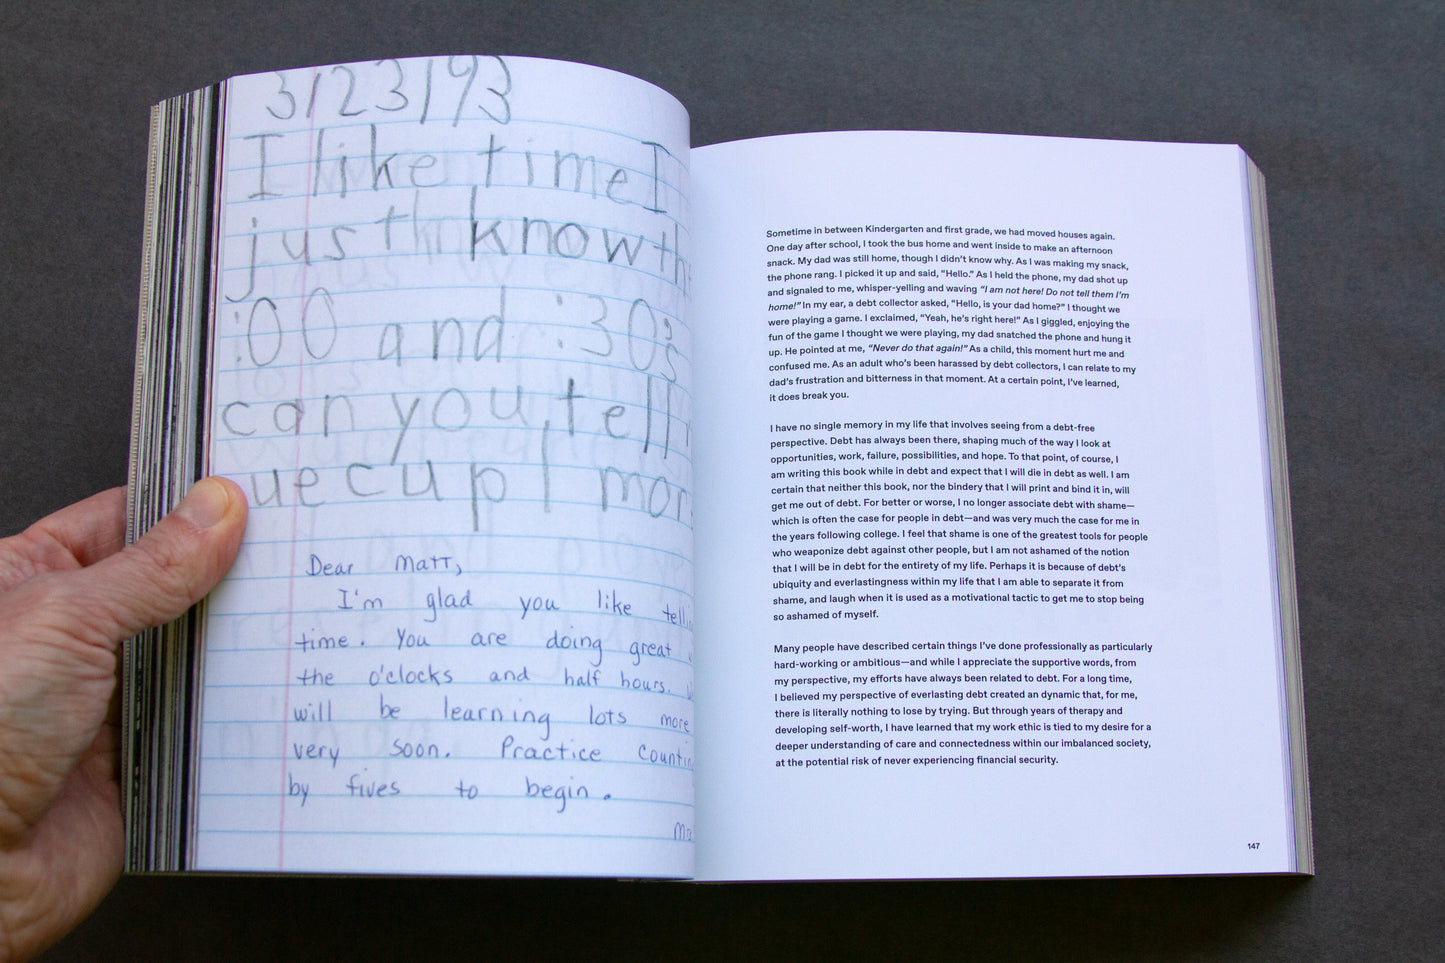 3/23/93
I like time I
just know th
:00 and :30's
can you tell
ue cup I mor
Dear Matt,
I'm glad you like tellin
time. You are doing great
the o'clocks and half hours.
will be learning lots more
very soon. Practice countin
by fives to begin.
Sometime in between Kindergarten and first grade, we had moved houses again.
One day after school, I took the bus home and went inside to make an afternoon
snack. My dad was still home, though I didn't know why. As I was making my snack,
the phone rang. I picked it up and said, "Hello." As I held the phone, my dad shot up
and signaled to me, whisper-yelling and waving "I am not here! Do not tell them I'm
home!" In my ear, a debt collector asked, "Hello, is your dad home?" I thought we
were playing a game. I exclaimed, "Yeah, he's right here!" As I giggled, enjoying the
fun of the game I thought we were playing, my dad snatched the phone and hung it
up. He pointed at me, "Never do that again!" As a child, this moment hurt me and
confused me. As an adult who's been harassed by debt collectors, I can relate to my
dad's frustration and bitterness in that moment. At a certain point, I've learned,
it does break you.
I have no single memory in my life that involves seeing from a debt-free
perspective. Debt has always been there, shaping much of the way I look at
opportunities, work, failure, possibilities, and hope. To that point, of course, I
am writing this book while in debt and expect that I will die in debt as well. I am
certain that neither this book, nor the bindery that I will print and bind it in, will
get me out of debt. For better or worse, I no longer associate debt with shame—
which is often the case for people in debt—and was very much the case for me in
the years following college. I feel that shame is one of the greatest tools for people
who weaponize debt against other people, but I am not ashamed of the notion
that I will be in debt for the entirety of my life. Perhaps it is because of debt's
ubiquity and everlastingness within my life that I am able to separate it from
shame, and laugh when it is used as a motivational tactic to get me to stop being
so ashamed of myself.
Many people have described certain things I've done professionally as particularly
hard-working or ambitious—and while I appreciate the supportive words, from
my perspective, my efforts have always been related to debt. For a long time,
I believed my perspective of everlasting debt created an dynamic that, for me,
there is literally nothing to lose by trying. But through years of therapy and
developing self-worth, I have learned that my work ethic is tied to my desire for a
deeper understanding of care and connectedness within our imbalanced society,
at the potential risk of never experiencing financial security.
147